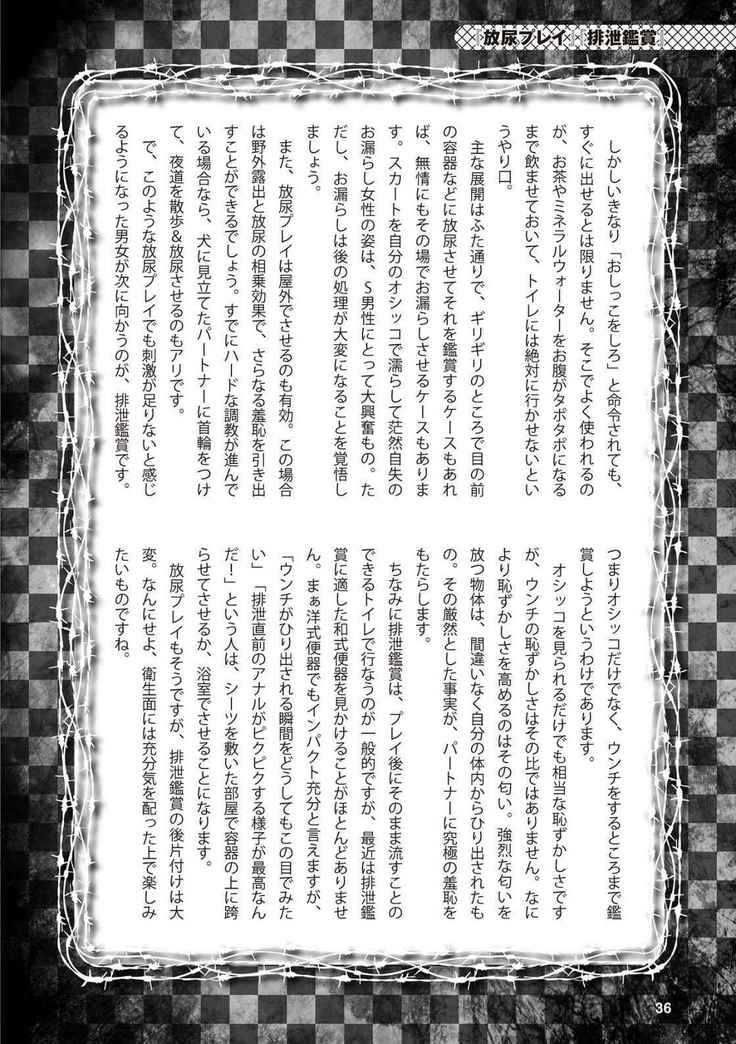 放尿プレイ　排泄鑑賞
　しかしいきなり「おしっこをしろ」と命令されても、
すぐに出せるとは限りません。そこでよく使われるの
が、お茶やミネラルウォーターをお腹がタポタポになる
まで飲ませておいて、トイレには絶対に行かせないとい
うやり口。
　主な展開はふた通りで、ギリギリのところで目の前
の容器などに放尿させてそれを鑑賞するケースもあれ
ば、無情にもその場でお漏らしさせるケースもありま
す。スカートを自分のオシッコで濡らして茫然自失の
お漏らし女性の姿は、S男性にとって大興奮もの。た
だし、お漏らしは後の処理が大変になることを覚悟し
ましょう。
　また、放尿プレイは屋外でさせるのも有効。この場合
は野外露出と放尿の相乗効果で、さらなる羞恥を引き出
すことができるでしょう。すでにハードな調教が進んで
いる場合なら、犬に見立てたパートナーに首輪をつけ
て、夜道を散歩&放尿させるのもアリです。
　で、このような放尿プレイでも刺激が足りないと感じ
るようになった男女が次に向かうのが、排泄鑑賞です。
つまりオシッコだけでなく、ウンチをするところまで鑑
賞しようというわけであります。
　オシッコを見られるだけでも相当な恥ずかしさです
が、ウンチの恥ずかしさはその比ではありません。なに
より恥ずかしさを高めるのはその匂い。強烈な匂いを
放つ物体は、間違いなく自分の体内からひり出されたも
の。その厳然とした事実が、パートナーに究極の羞恥を
もたらします。
　ちなみに排泄鑑賞は、プレイ後にそのまま流すことの
できるトイレで行なうのが一般的ですが、最近は排泄鑑
賞に適した和式便器を見かけることがほとんどありませ
ん。まぁ洋式便器でもインパクト充分と言えますが、
「ウンチがひり出される瞬間をどうしてもこの目でみた
い」「排泄直前のアナルがピクピクする様子が最高なん
だ！」という人は、シーツを敷いた部屋で容器の上に跨
らせてさせるか、浴室でさせることになります。
　放尿プレイもそうですが、排泄鑑賞の後片付けは大
変。なんにせよ、衛生面には充分気を配った上で楽しみ
たいものですね。
36